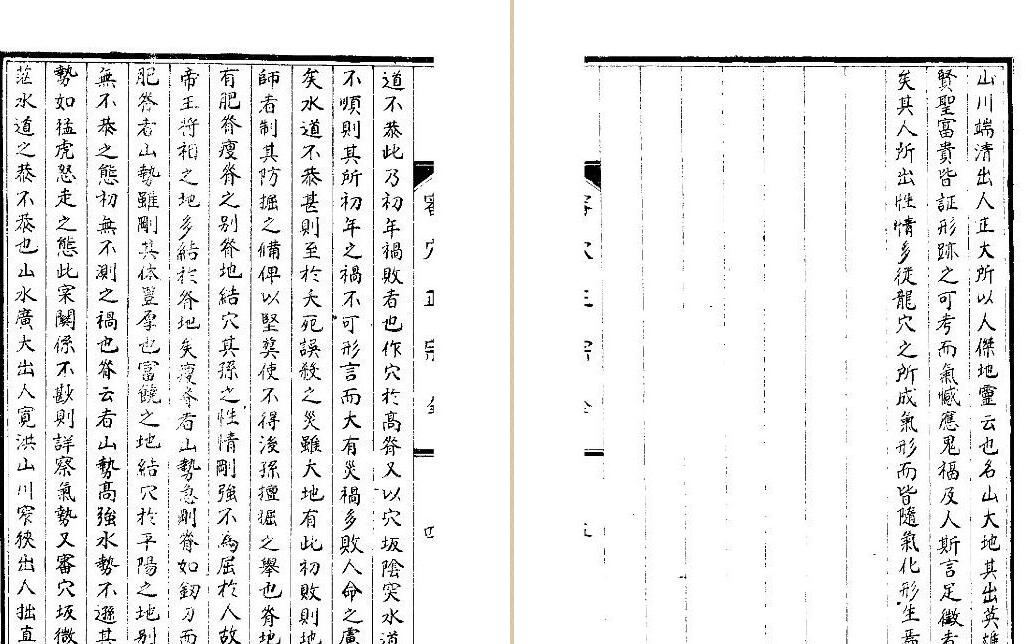 審穴正宗全 四
道不恭此乃初年禍敗者也作穴於高脊又以穴坂陰突水道
不順則其所初年之禍不可形言而大有災禍多敗人命之處
矣水道不恭甚則至於夭死誤殺之災雖大地有此初敗則地
師者制其防掘之備俾以堅葬使不得後孫擅掘之舉也脊地
有肥脊瘦脊之别脊地結穴其孫之性情剛強不為屈於人故
帝王將相之地多結於脊地矣瘦脊者山勢急剛脊如釰刃而
肥脊者山勢雖剛其体豐厚也富饒之地結穴於平陽之地别
無不恭之態初無不測之禍也脊云者山勢高強水勢不遜其
勢如猛虎怒走之態此案關係不尠則詳察氣勢又審穴坂微
茫水道之恭不恭也山水廣大出人寬洪山川窄狹出人拙直
山川端清出人正大所以人傑地靈云也名山大地其出英雄
賢聖富貴皆証形跡之可考而氣憾應鬼福及人斯言足徵者
矣其人所出性情多從龍穴之所成氣形而皆隨氣化形生焉
審穴正宗全 五